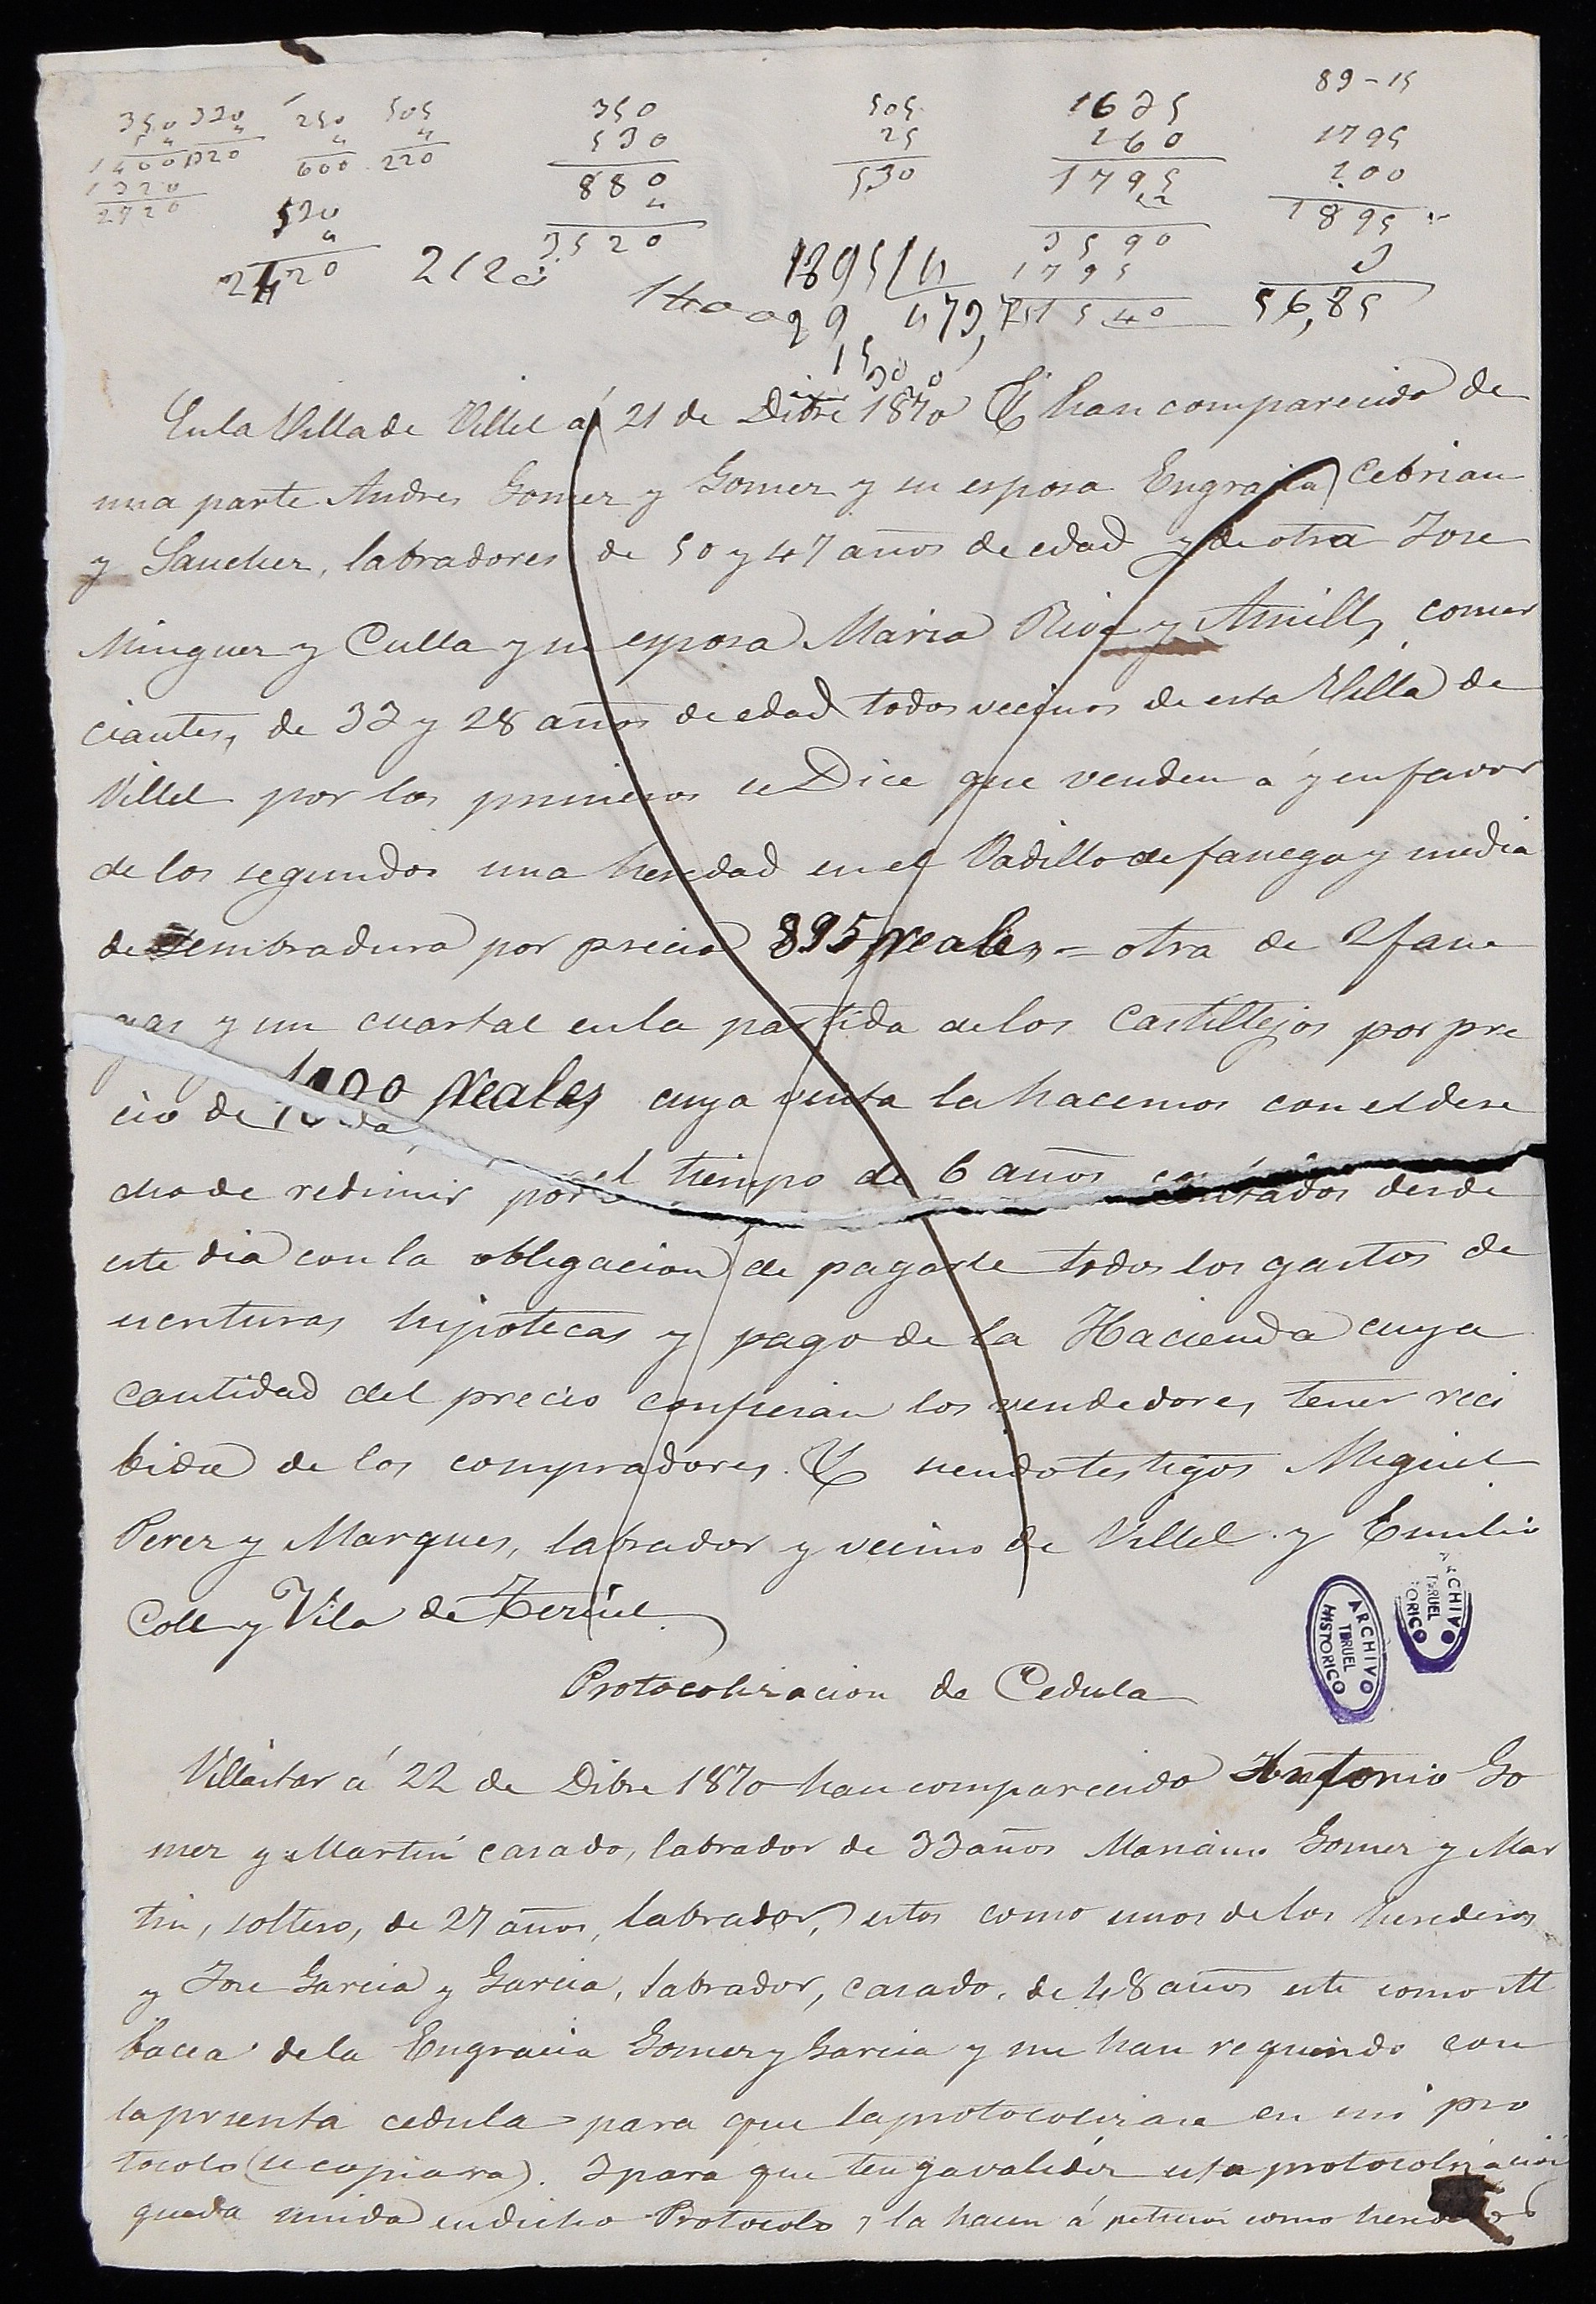 89-15
350 320 250 505 350 505 1635 1795
4 4 4 4 530 25 160 100
1400 1320 600 220 880 530 1795 1895
1320 4 3
2720 530 3520 3590 56,85
4 1895 4 1795
2120 212 1400 29 473,75 21540
15
30
0
En la Villa de Villel á 21 de Dibre 1870 & han comparecido de
una parte Andres Gomez y Gomez y su esposa Engracia Cebrian
y Sanchez, labradores de 50 y 47 años de edad y de otra Jose
Minguez y Culla y su esposa Maria Riva y comer
ciantes, de 33 y 28 años de edad todos vecinos de esta Villa de
Villel por los primeros se Dice que venden á y en favor
de los segundos una heredad en el Vadillo de fanega y media
de sembradura por precio 895 reales = otra de 2 fane
gas y un cuartal en la partida de los Castillejos por pre
cio de 1000 Reales cuya venta la hacemos con el dere
cho de redimir por el tiempo de 6 años contados desde
este dia con la obligacion de pagarle todos los gastos de
escrituras hipotecas y pago de la Hacienda cuya
cantidad del precio confiesan los vendedores tener reci
bida de los compradores. & siendo testigos Miguel
Perez y Marques, labrador y vecino de Villel y Emilio
Coll y Vila de Teruel
ARCHIVO HISTORICO TERUEL
ARCHIVO HISTORICO TERUEL
Protocolizacion de Cedula
Villastar á 22 de Dibre 1870 han comparecido Antonio Go
mez y Martin casado, labrador de 33 años Mariano Gomez y Mar
tin, soltero, de 27 años, labrador, estos como unos de los herederos
y Jose Garcia y Garcia, labrador, casado, de 48 años este como Al
bacea de la Engracia Gomez y Garcia y me han requerido con
la presenta cedula para que la protocolizase en mi pro
tocolo (se copiara). Y para que tenga validéz esta protocolizacion
queda unida en dicho Protocolo y la hacen á peticion como herederos